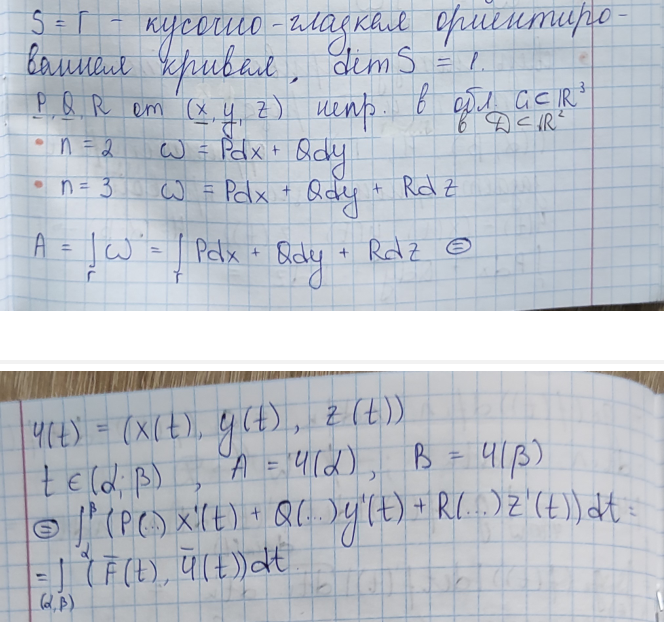 S = Г – кусочно-гладкая ориентиро-
ванная кривая, dim S = 1.
P, Q, R от (x, y, z) непр. в обл. G ⊂ ℝ³
в D ⊂ ℝ²
• n = 2 ω = Pdx + Qdy
• n = 3 ω = Pdx + Qdy + Rdz
A = ∫_Г ω = ∫_Г Pdx + Qdy + Rdz ⊜
φ(t) = (x(t), y(t), z(t))
t ∈ (α; β), A = φ(α), B = φ(β)
⊜ ∫_α^β (P(..) x'(t) + Q(...) y'(t) + R(...) z'(t)) dt =
= ∫_(α, β) (F̄(t), φ̄(t)) dt